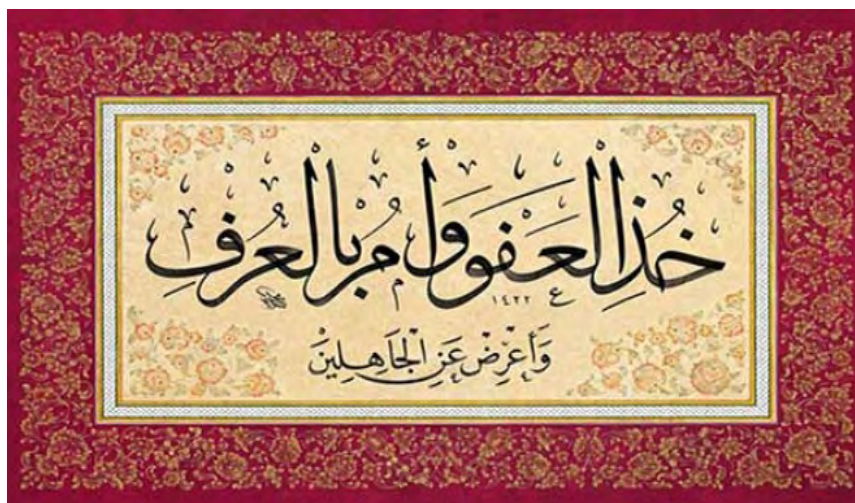 خُذِ الْعَفْوَ وَأْمُرْ بِالْعُرْفِ
١٤٢٢
وَأَعْرِضْ عَنِ الْجَاهِلِينَ